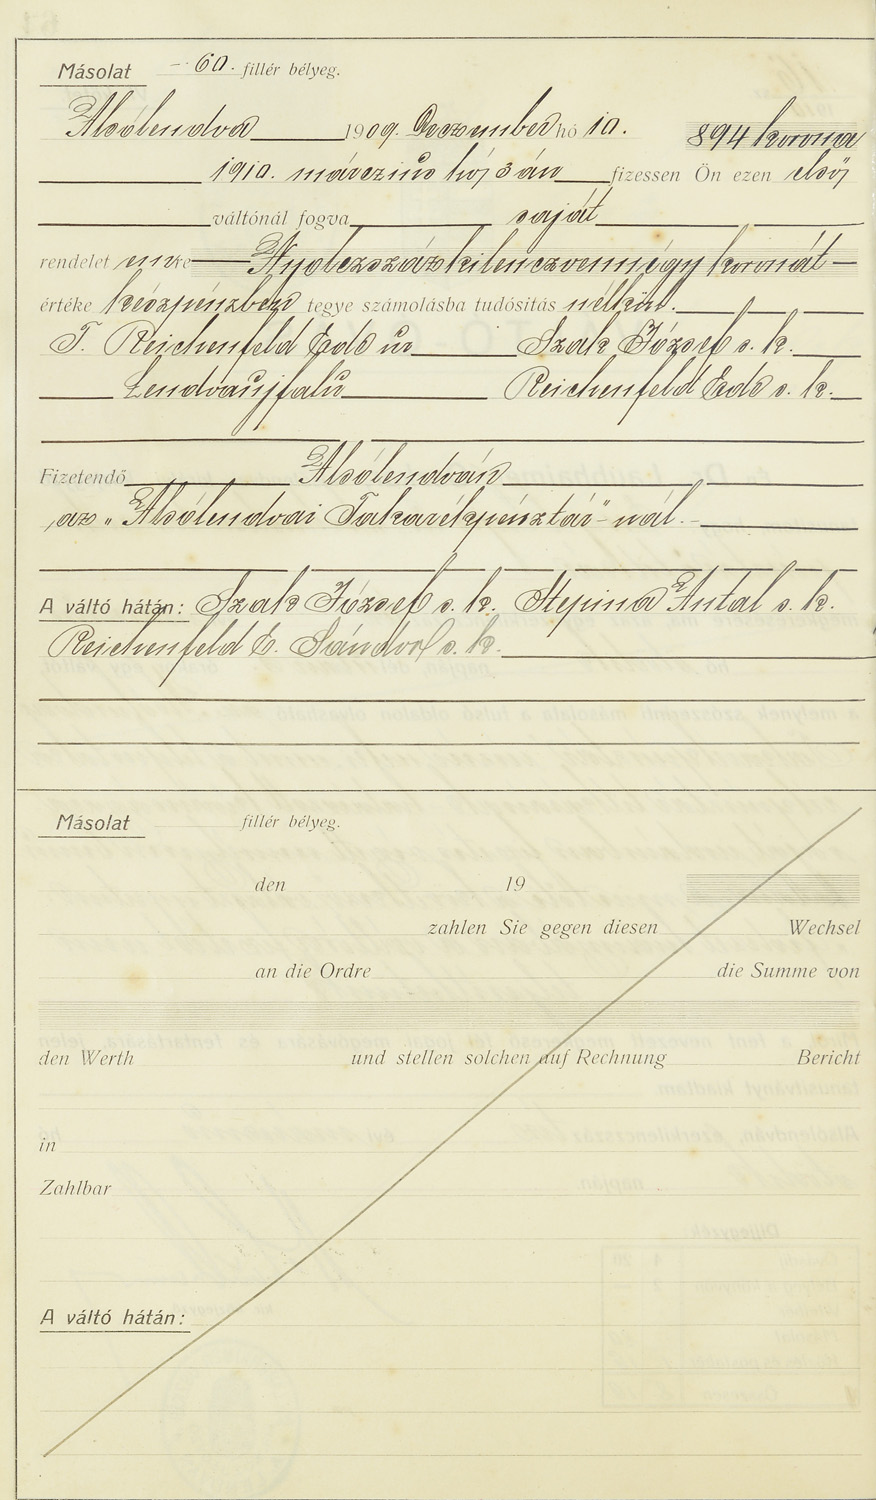 Másolat 60. fillér bélyeg.
Alsólendva 1909. Deczember hó 10. 894 korona
1910. márczius hó 3 án fizessen Ön ezen első
váltónál fogva saját
rendeletemre Nyolczszázkilenczvennégy koronát
értéke készpénzben tegye számolásba tudósítás nélkül.
T. Reichenfeld Ede úr Szak József s. k.
Lendvaujfalu Reichenfeld Ede s. k.
Fizetendő Alsólendván
az „Alsólendvai Takarékpénztár"-nál.
A váltó hátán: Szak József s. k. Stepina Antal s. k.
Reichenfeld E. Sándor s. k.
Másolat fillér bélyeg.
den 19
zahlen Sie gegen diesen Wechsel
an die Ordre die Summe von
den Werth und stellen solchen auf Rechnung Bericht
in
Zahlbar
A váltó hátán: